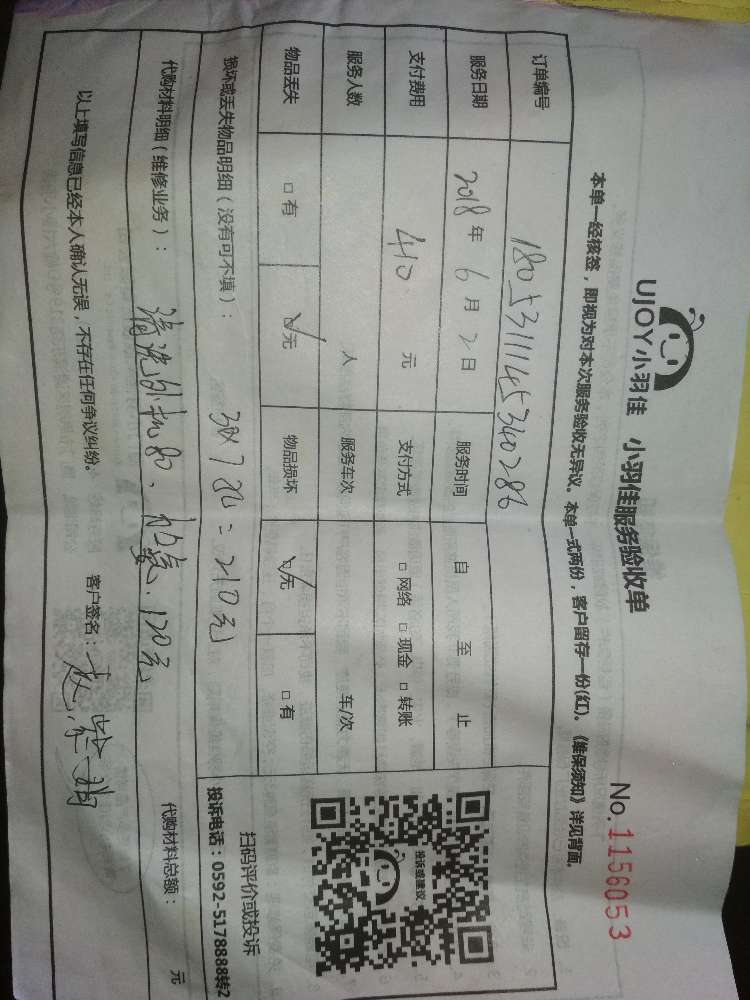 UJOY小羽佳 小羽佳服务验收单 No.1156053
本单一经核签，即视为对本次服务验收无异议。本单一式两份，客户留存一份(红)。《维保须知》详见背面。
订单编号 1805311145340286
服务日期 2018年6月2日 服务时间 自 至 止
支付费用 410元 支付方式 □网络 □现金 □转账
服务人数 人 服务车次 车/次
物品丢失 □有 ☑无 物品损坏 ☑无 □有
投诉或建议
扫码评价或投诉
投诉电话：0592-5178888转2
损坏或丢失物品明细（没有可不填）：
=210元
代购材料明细（维修业务）： 清洗外机80、 120元 代购材料总额： 元
以上填写信息已经本人确认无误，不存在任何争议纠纷。 客户签名：赵